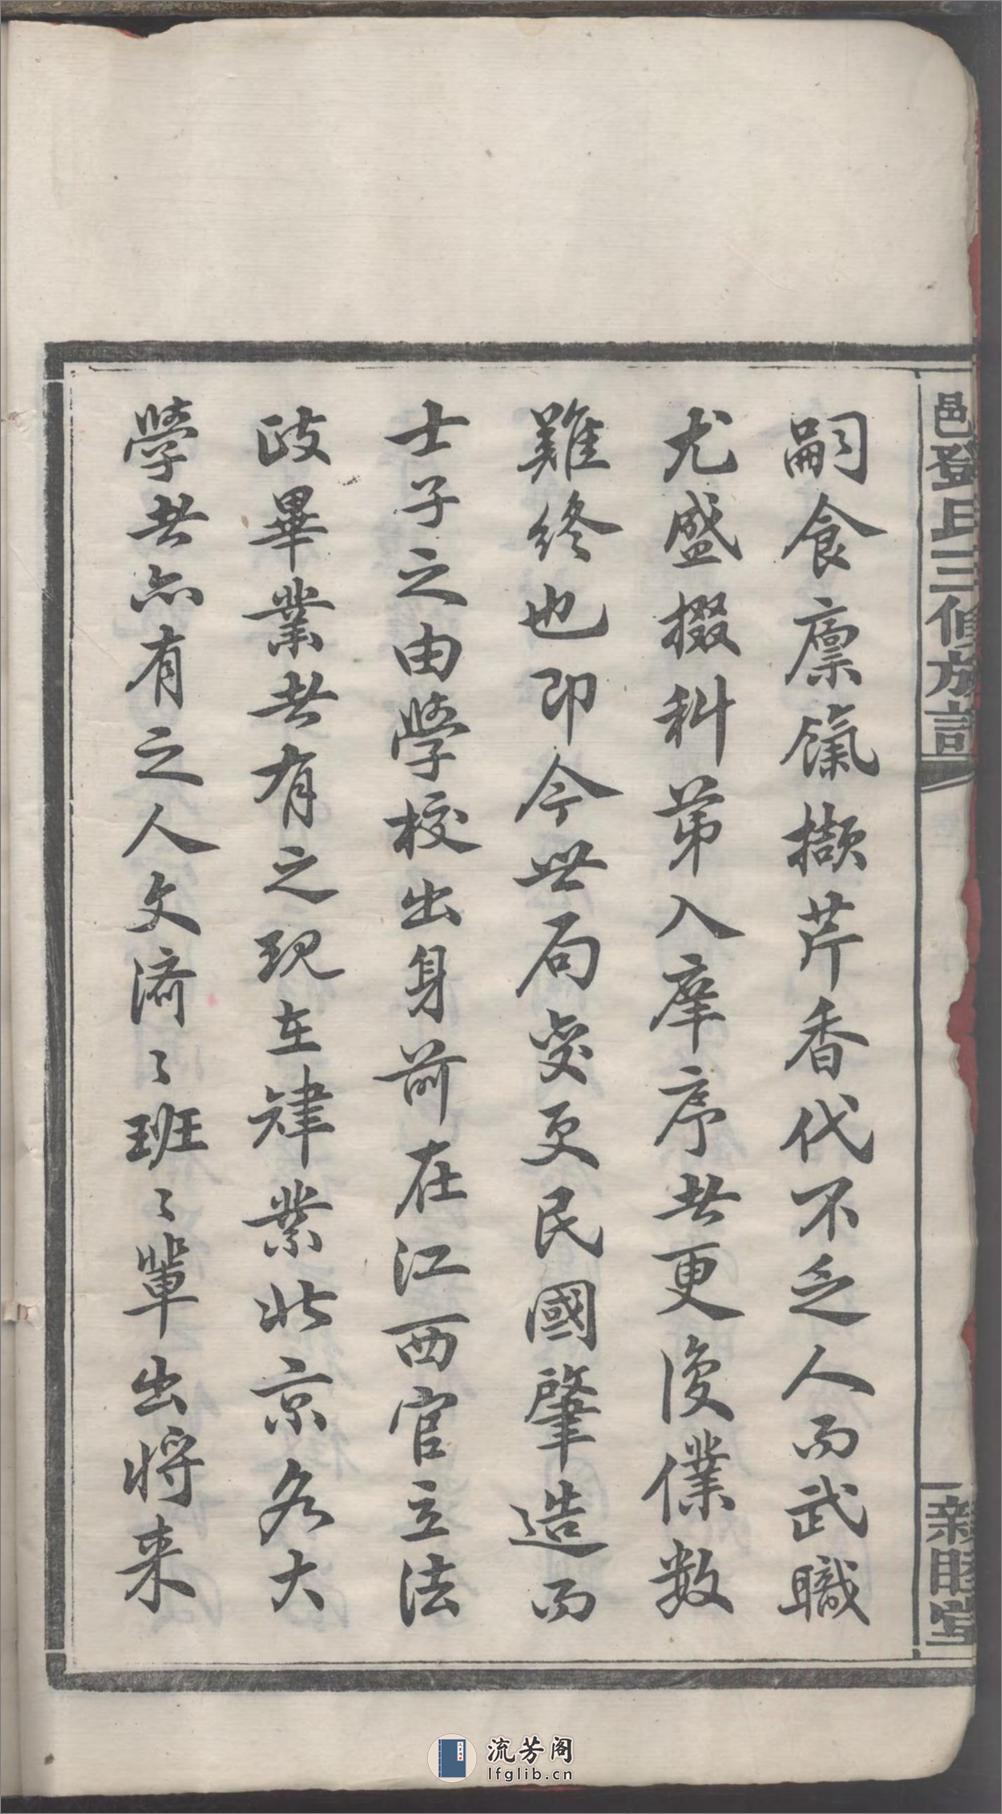 邑鄧氏三修族譜
親睦堂
嗣食廩餼擷芹香代不乏人而武職
尤盛掇科第入庠序共更復僕數
難終也即今世局变更民國肇造而
士子之由學校出身前在江西官立法
政畢業共有之現在肄業北京各大
學共亦有之人文济〻班〻輩出将来
流芳阁
lfglib.cn